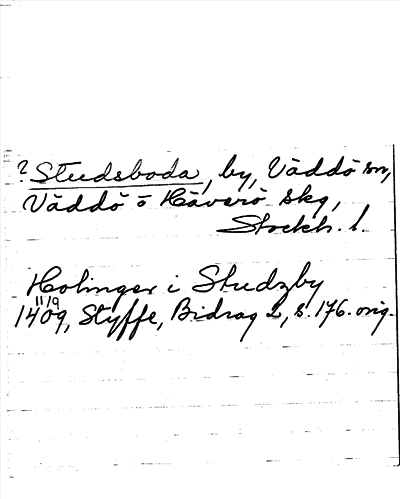 ? Studsboda, by, Väddö sn,
Väddö o Häverö skg,
Stockh. l.
Holmger i Studzby
11/9
1409, Styffe, Bidrag 2, s. 176. orig.